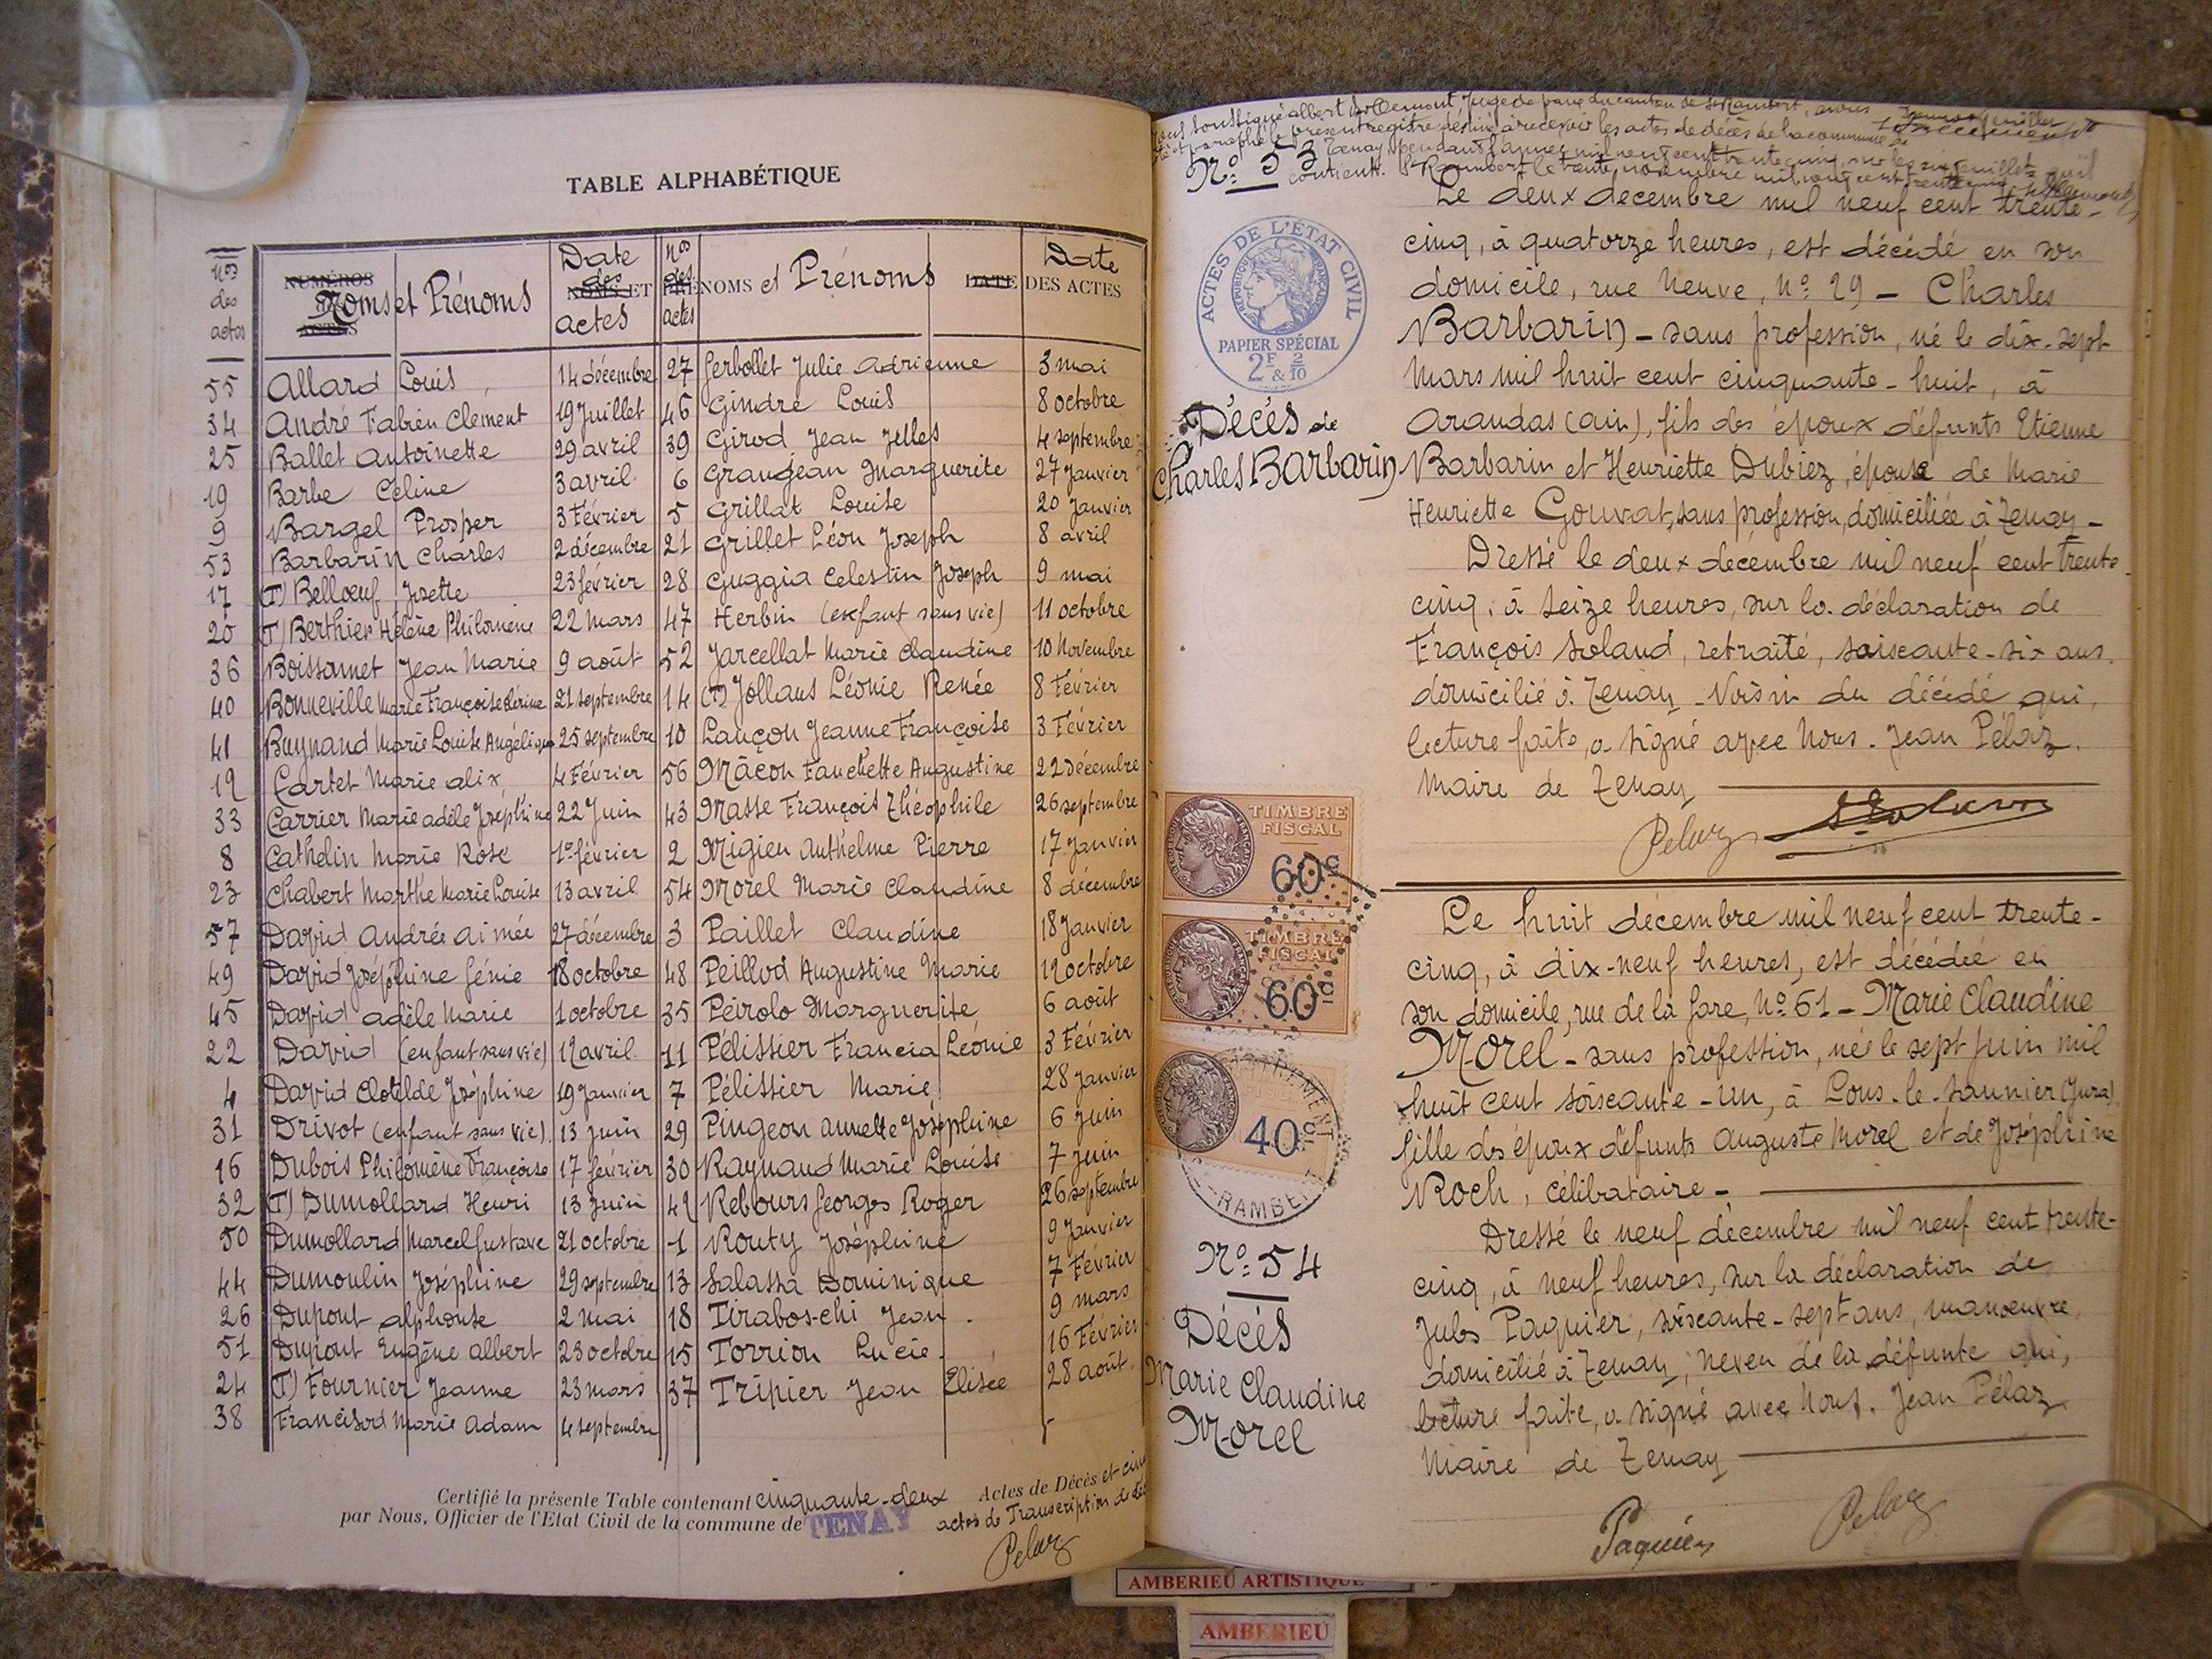 TABLE ALPHABÉTIQUE
Nos des actes
NUMÉROS
ACTES
Noms et Prénoms
Date des actes
NOMS ET PRÉNOMS et Prénoms
Nos des actes
Date
DATE DES ACTES
55 Allard Louis 14 décembre
34 André Fabien Clément 19 Juillet
25 Ballet Antoinette 29 avril
19 Barbe Céline 3 avril
9 Bargel Prosper 3 Février
53 Barbarin Charles 2 décembre
17 (T) Bellœuf Josette 23 février
20 (T) Berthier Hélène Philomène 22 Mars
36 Boissonnet Jean Marie 9 août
40 Bonneville Marie Françoise 21 septembre
41 Buynand Marie Louise Angélique 25 septembre
12 Cartet Marie Alix 4 Février
33 Carrier Marie Adèle Joséphine 22 Juin
8 Cathelin Marie Rose 1er février
23 Chabert Marthe Marie Louise 13 avril
57 David Andrée Aimée 27 décembre
49 David Joséphine Génie 18 octobre
45 David Adèle Marie 1 octobre
22 David (enfant sans vie) 12 avril
4 David Clotilde Joséphine 19 Janvier
31 Drivot (enfant sans vie) 13 juin
16 Dubois Philomène Françoise 17 février
32 (T) Dumollard Henri 13 juin
50 Dumollard Marcel Gustave 21 octobre
44 Dumoulin Joséphine 29 septembre
26 Dupont Alphonse 2 mai
51 Dupont Eugène Albert 23 octobre
24 (T) Fournier Jeanne 23 mars
38 Francisod Marie Adam 4 septembre
27 Gerbollet Julie Adrienne 3 mai
46 Gindre Louis 8 octobre
39 Girod Jean Jelles 4 septembre
6 Grandjean Marguerite 27 Janvier
5 Grillat Louise 20 Janvier
21 Grillet Léon Joseph 8 avril
28 Guggia Celestin Joseph 9 mai
47 Herbin (enfant sans vie) 11 octobre
52 Jarcellat Marie Claudine 10 Novembre
14 (T) Jollans Léonie Renée 8 Février
10 Lançon Jeanne Françoise 3 Février
56 Mâcon Fanchette Augustine 22 Décembre
43 Masse François Théophile 26 septembre
2 Migieu Anthelme Pierre 17 Janvier
54 Morel Marie Claudine 8 décembre
3 Paillet Claudine 18 Janvier
48 Peillod Augustine Marie 12 octobre
35 Peirolo Marguerite 6 août
11 Pélissier Francia Léonie 3 Février
7 Pélissier Marie 28 Janvier
29 Pingeon Annette Joséphine 6 Juin
30 Raynaud Marie Louise 7 Juin
42 Rebours Georges Roger 26 septembre
1 Routy Joséphine 9 Janvier
13 Salassa Dominique 7 Février
18 Tiraboschi Jean 9 mars
15 Torrion Lucie 16 Février
37 Tripier Jean Elisée 28 août
Certifié la présente Table contenant cinquante-deux Actes de Décès et cinq
par Nous, Officier de l'Etat Civil de la commune de TENAY actes de Transcription de
Pelaz
Nous soussigné Albert Juge de paix du canton de St Rambert, avons
et paraphé le présent registre destiné à recevoir les actes de décès de la commune de
Tenay, pendant l'année mil neuf cent trente cinq, sur les six feuillets qu'il
contient. St Rambert le trente novembre mil neuf cent trente cinq
N° 53
ACTES DE L'ÉTAT CIVIL
RÉPUBLIQUE FRANÇAISE
PAPIER SPÉCIAL
2F & 2/10
Décès de
Charles Barbarin
Le deux décembre mil neuf cent trente-
cinq, à quatorze heures, est décédé en son
domicile, rue Neuve, N° 29 – Charles
Barbarin – sans profession, né le dix-sept
Mars mil huit cent cinquante-huit, à
Arandas (Ain), fils des époux défunts Etienne
Barbarin et Henriette Dubiez, époux de Marie
Henriette Gouvat, sans profession, domiciliée à Tenay –
Dressé le deux décembre mil neuf cent trente
cinq, à seize heures, sur la déclaration de
François Soland, retraité, soixante-six ans,
domicilié à Tenay – Voisin du décédé qui,
lecture faite, a signé avec Nous. Jean Pélaz
Maire de Tenay
Pelaz
TIMBRE FISCAL
60c
TIMBRE FISCAL
60c
40c
RAMBE
N° 54
Décés
Marie Claudine
Morel
Le huit décembre mil neuf cent trente-
cinq, à dix-neuf heures, est décédée en
son domicile, rue de la Gare, N° 61 – Marie Claudine
Morel – sans profession, née le sept juin mil
huit cent soixante-un, à Lons-le-Saunier (Jura),
fille des époux défunts Auguste Morel et de Joséphine
Roch, célibataire –
Dressé le neuf décembre mil neuf cent trente-
cinq, à neuf heures, sur la déclaration de
Jules Paquier, soixante-sept ans, manœuvre,
domicilié à Tenay, neveu de la défunte qui,
lecture faite, a signé avec Nous. Jean Pélaz
Maire de Tenay
Paquier
Pelaz
AMBERIEU ARTISTIQUE
AMBERIEU